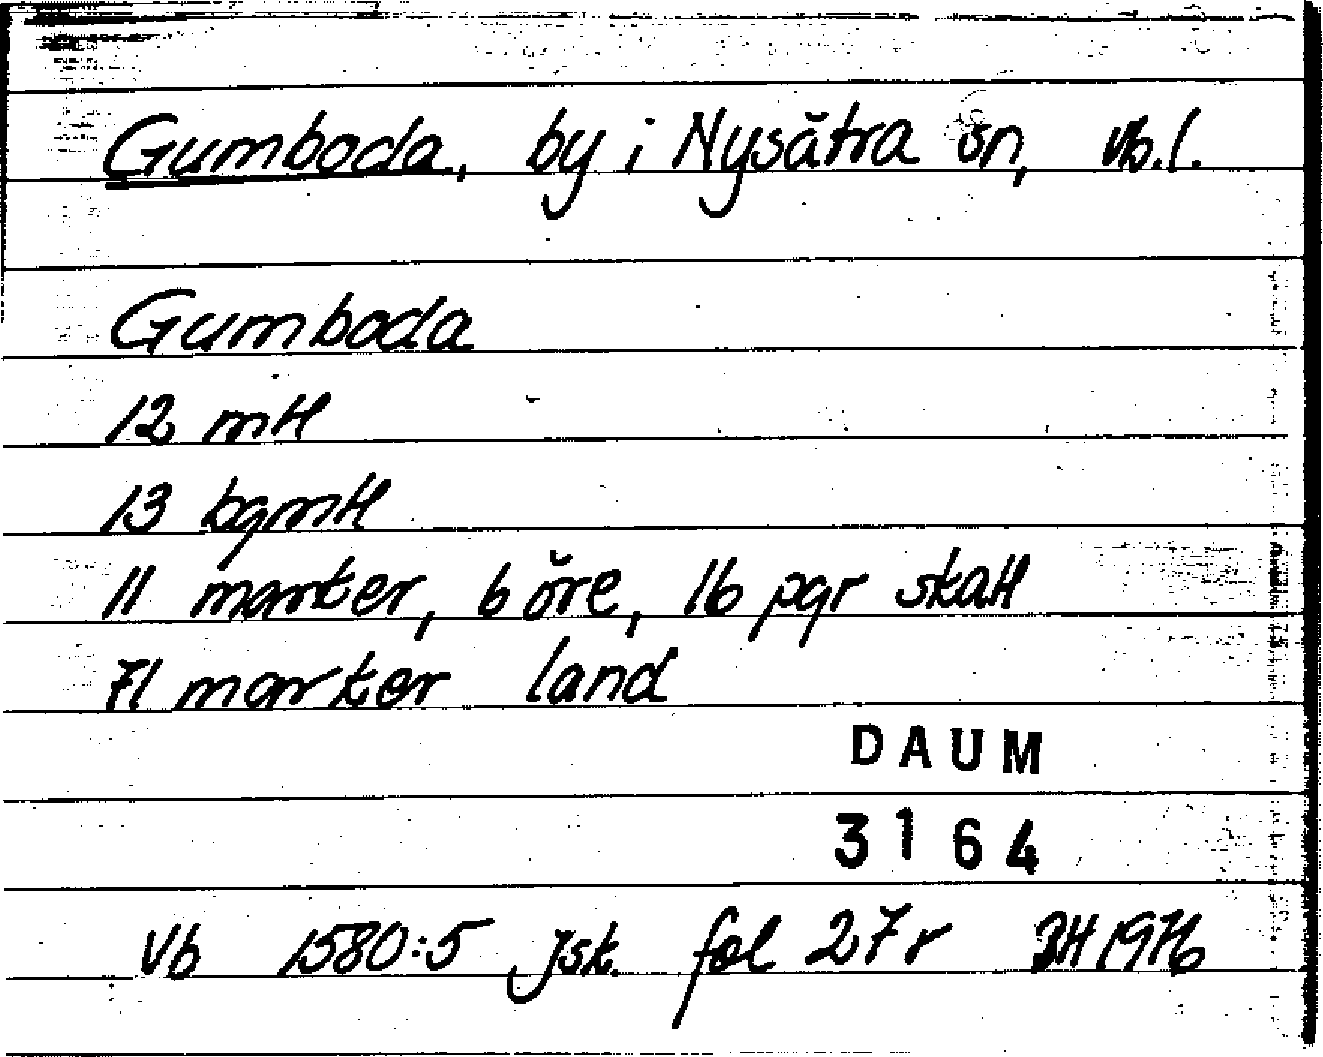 Gumboda, by i Nysätra sn, Vb.l.
Gumboda
12 mtl
13 bgmtl
11 marker, 6 öre, 16 pgr skatt
71 marker land
DAUM
3164
Vb 1580:5 Jsk. fol 27r BH 1976